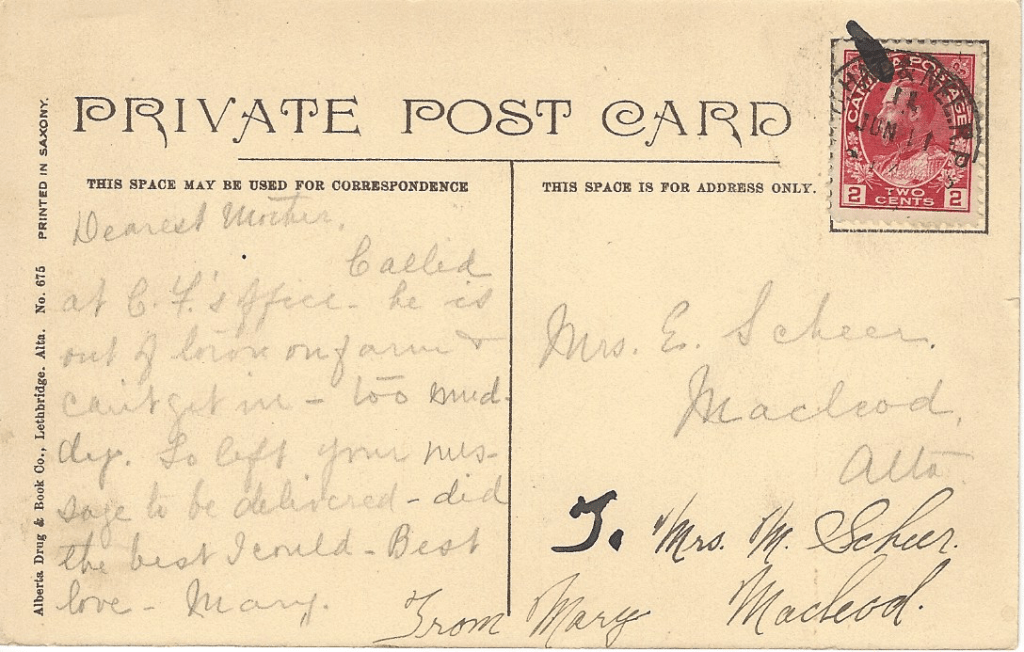 PRIVATE POST CARD
THIS SPACE MAY BE USED FOR CORRESPONDENCE
Dearest Mother,
Called
at C. F.'s office - he is
out of town on farm &
can't get in - too mud-
dy. So left your mes-
sage to be delivered - did
the best I could - Best
love - Mary.
THIS SPACE IS FOR ADDRESS ONLY.
CANADA POSTAGE
2 TWO CENTS 2
JUN 11
Mrs. E. Scheer.
Macleod,
Alta
J. Mrs. M. Scheer.
Macleod.
From Mary
Alberta Drug & Book Co., Lethbridge. Alta. No. 675 PRINTED IN SAXONY.